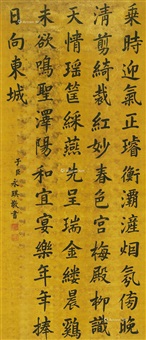 乘時迎氣正璿衡灞滻烟氛向晚
清剪綺裁紅妙春色宮梅殿柳識
天情瑶筐綵燕先呈瑞金縷晨鷄
未欲鳴聖澤陽和宜宴樂年年捧
日向東城
子臣永琪敬書